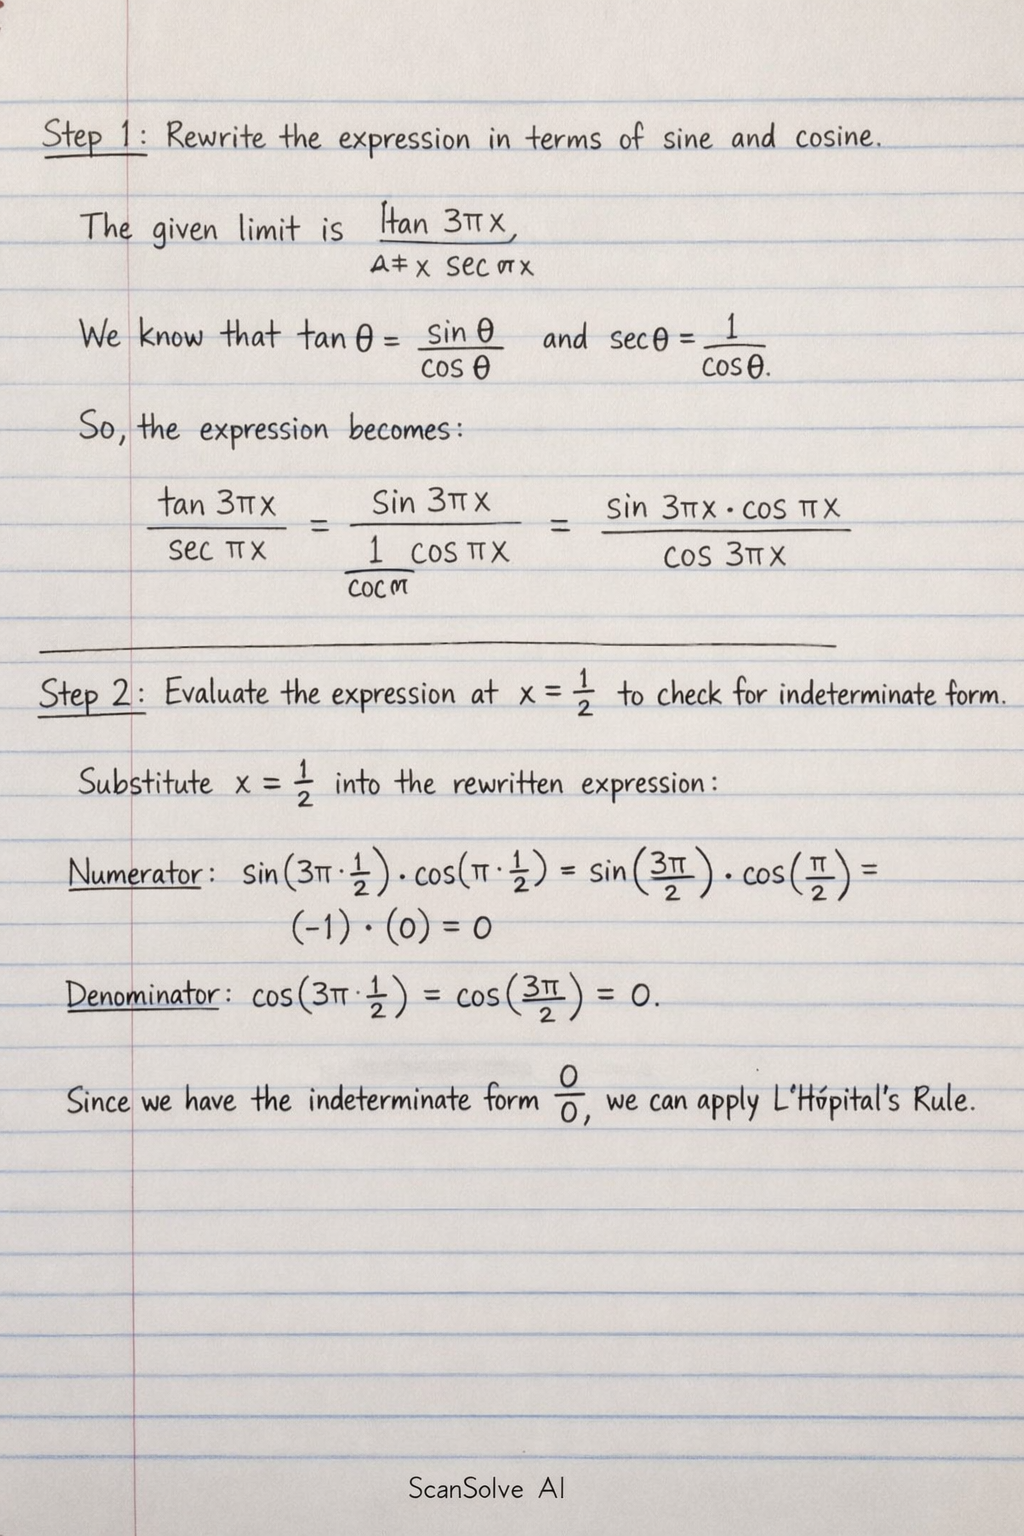 Step 1: Rewrite the expression in terms of sine and cosine.
The given limit is tan 3πx,
x sec πx
We know that tan θ = sin θ / cos θ and sec θ = 1 / cos θ.
So, the expression becomes:
tan 3πx / sec πx = sin 3πx / 1 cos πx = sin 3πx · cos πx / cos 3πx
Step 2: Evaluate the expression at x = 1/2 to check for indeterminate form.
Substitute x = 1/2 into the rewritten expression:
Numerator: sin(3π · 1/2) · cos(π · 1/2) = sin(3π/2) · cos(π/2) =
(-1) · (0) = 0
Denominator: cos(3π · 1/2) = cos(3π/2) = 0.
Since we have the indeterminate form 0/0, we can apply L'Hópital's Rule.
ScanSolve AI